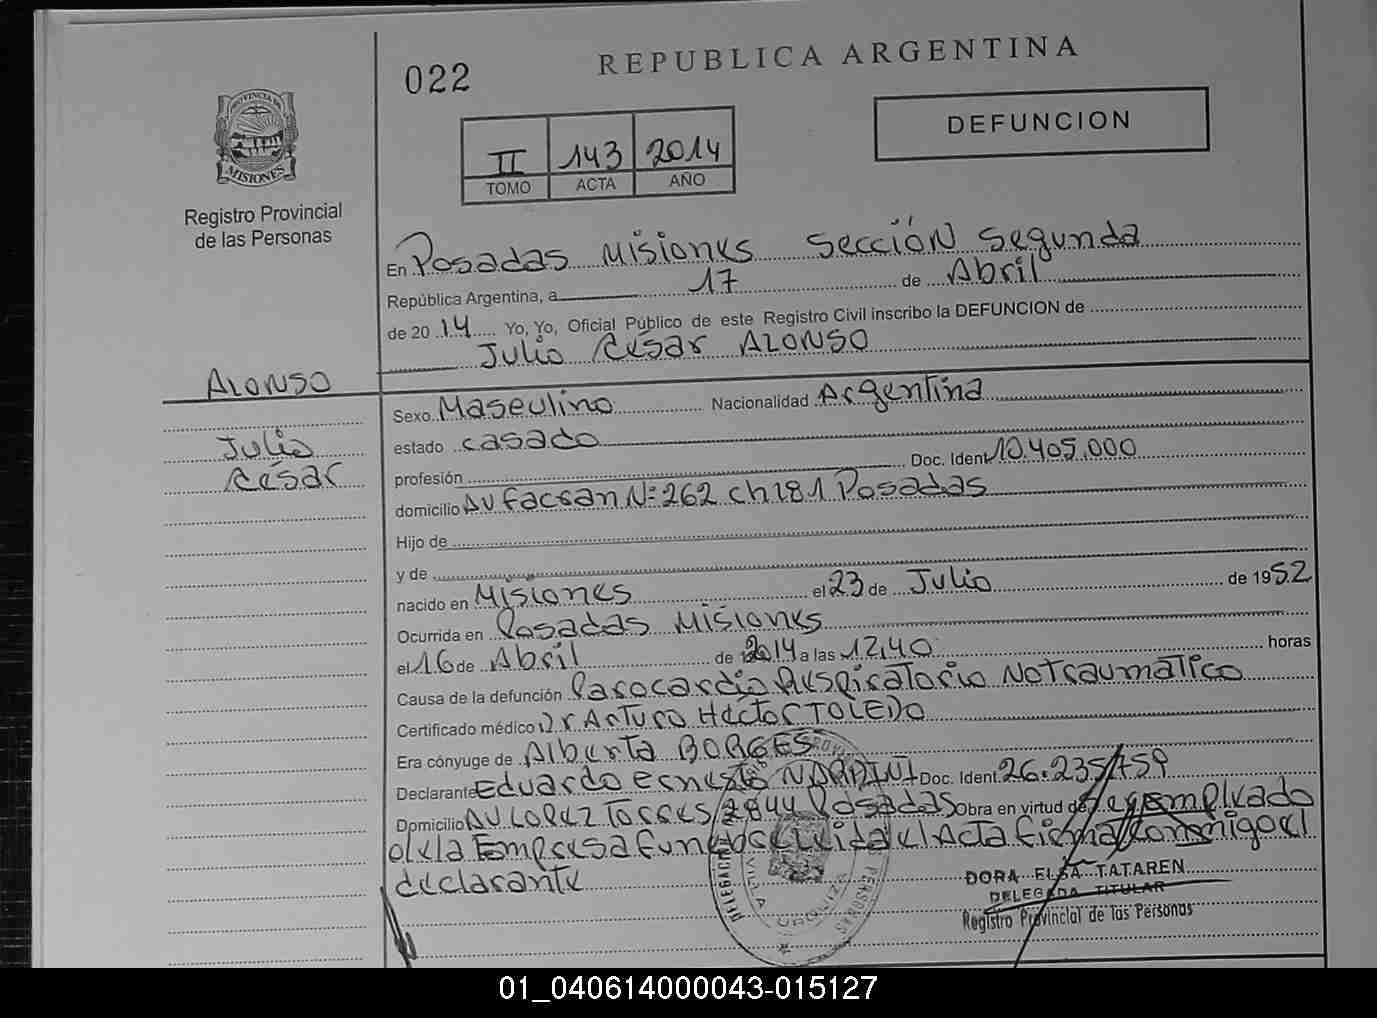 022
REPUBLICA ARGENTINA
PROVINCIA DE
MISIONES
Registro Provincial
de las Personas
II 143 2014
TOMO ACTA AÑO
DEFUNCION
En Posadas Misiones Sección Segunda
República Argentina, a 17 de Abril
de 2014 Yo, Yo, Oficial Público de este Registro Civil inscribo la DEFUNCION de
Julio César ALONSO
ALONSO
Julio
César
Sexo Masculino Nacionalidad Argentina
estado casado
profesión Doc. Ident 10.405.000
domicilio AV Facran N: 262 ch 181 Posadas
Hijo de
y de
nacido en Misiones el 23 de Julio de 1952
Ocurrida en Posadas Misiones
el 16 de Abril de 2014 a las 12,40 horas
Causa de la defunción Parocardio Respiratorio No Traumático
Certificado médico Dr Arturo Héctor TOLEDO
Era cónyuge de Alberta BORGES
Declarante Eduardo Ernesto NARDINI Doc. Ident. 26.235.759
Domicilio AV LOPEZ Torres 2844 Posadas Obra en virtud de ser empleado
de la Empresa Funebre Leida el Acta Firma conmigo el
declarante
DORA ELSA TATAREN
DELEGADA TITULAR
Registro Provincial de las Personas
01_040614000043-015127